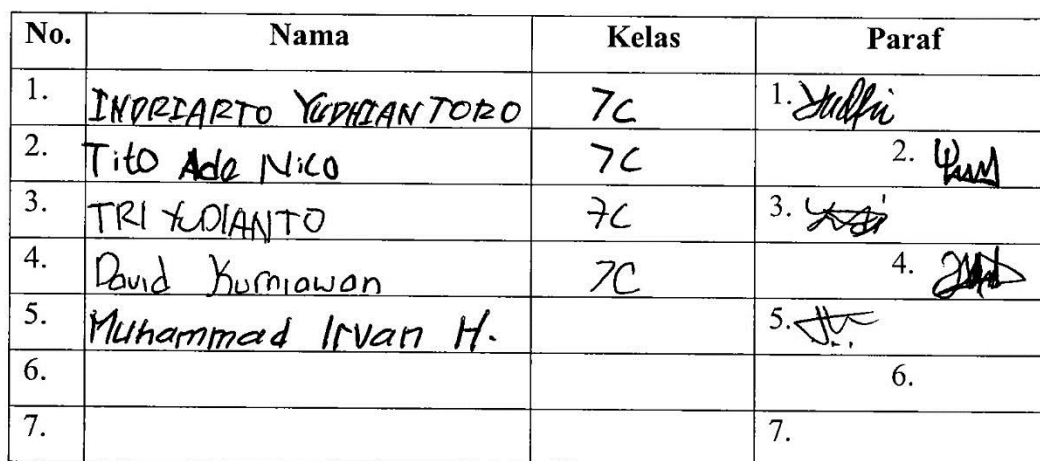 No. Nama Kelas Paraf
1. INDRIARTO YUDHIANTORO 7C 1.
2. Tito Ade Nico 7C 2.
3. TRI YUDIANTO 7C 3.
4. David Kurniawan 7C 4.
5. Muhammad Irvan H. 5.
6. 6.
7. 7.